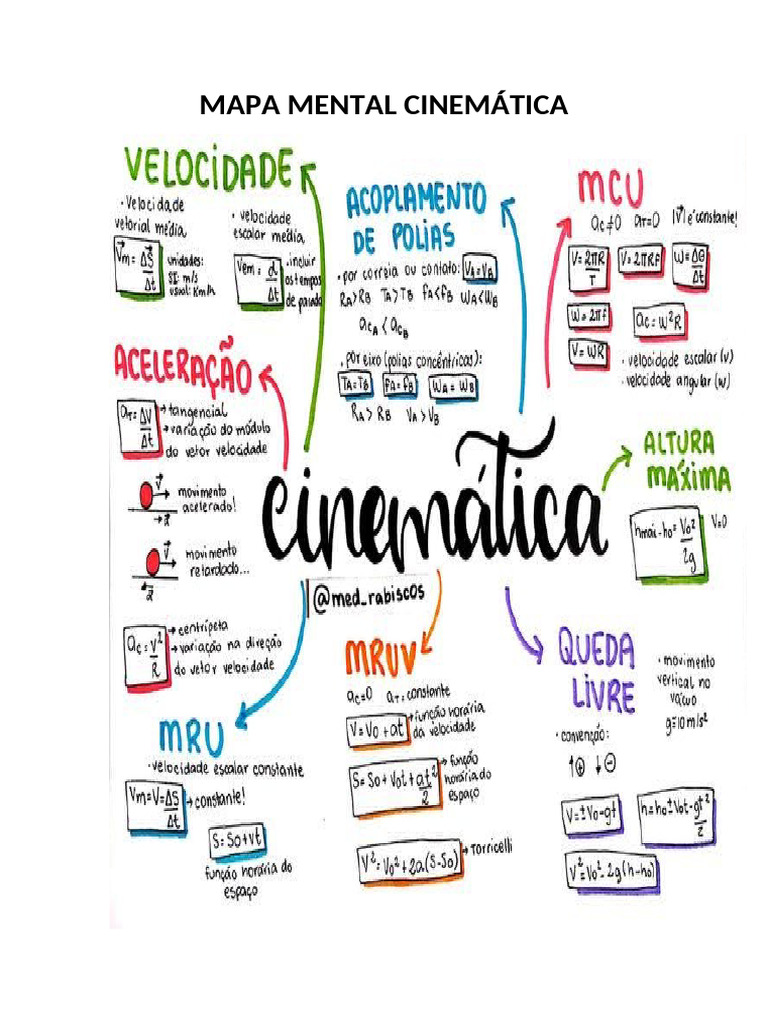 MAPA MENTAL CINEMÁTICA
VELOCIDADE
• Velocidade
vetorial média
V⃗m = ΔS⃗/Δt
unidades:
SI: m/s
usual: Km/h
• velocidade
escalar média
Vem = d/Δt
• incluir
os tempos
de parada
ACOPLAMENTO
DE POLIAS
• por correia ou contato: VA = VB
RA > RB TA > TB fA < fB WA < WB
acA < acB
• por eixo (polias concêntricas):
TA = TB fA = fB WA = WB
RA > RB VA > VB
MCU
ac ≠ 0 aT = 0 |V⃗| é constante!
V = 2πR/T
V = 2πRf
W = Δθ/Δt
W = 2πf
ac = w²R
V = WR
• velocidade escalar (v)
• velocidade angular (w)
ACELERAÇÃO
aT = ΔV/Δt
→ tangencial
→ variação do módulo
do vetor velocidade
V⃗
movimento
acelerado!
a⃗
V⃗
movimento
retardado...
a⃗
ac = v²/R
→ centrípeta
→ variação na direção
do vetor velocidade
cinemática
@med_rabiscos
ALTURA
MÁXIMA
hmáx - ho = Vo²/2g
V=0
MRU
• velocidade escalar constante
Vm = V = ΔS/Δt → constante!
S = So + vt
função horária do
espaço
MRUV
ac = 0 aT = constante
V = Vo + at
→ função horária
da velocidade
S = So + Vot + at²/2
→ função
horária do
espaço
V² = Vo² + 2a(S-So)
→ Torricelli
QUEDA
LIVRE
• movimento
vertical no
vácuo
g=10m/s²
• convenção:
↑⊕ ↓⊖
V = ±Vo - gt
h = ho ± Vot - gt²/2
V² = Vo² - 2g(h-ho)